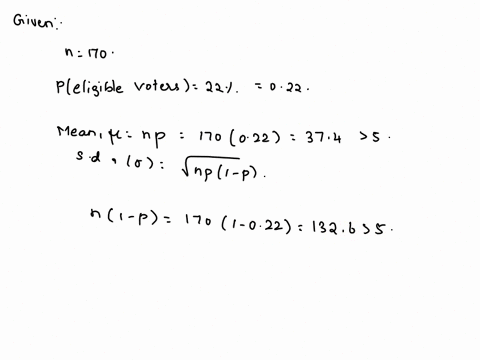 Given:.
n = 170.
P(eligible voters) = 22%. = 0.22.
Mean, μ = np = 170 (0.22) = 37.4 > 5.
s.d, (σ) = √np(1-p).
n(1-p) = 170 (1-0.22) = 132.6 > 5.